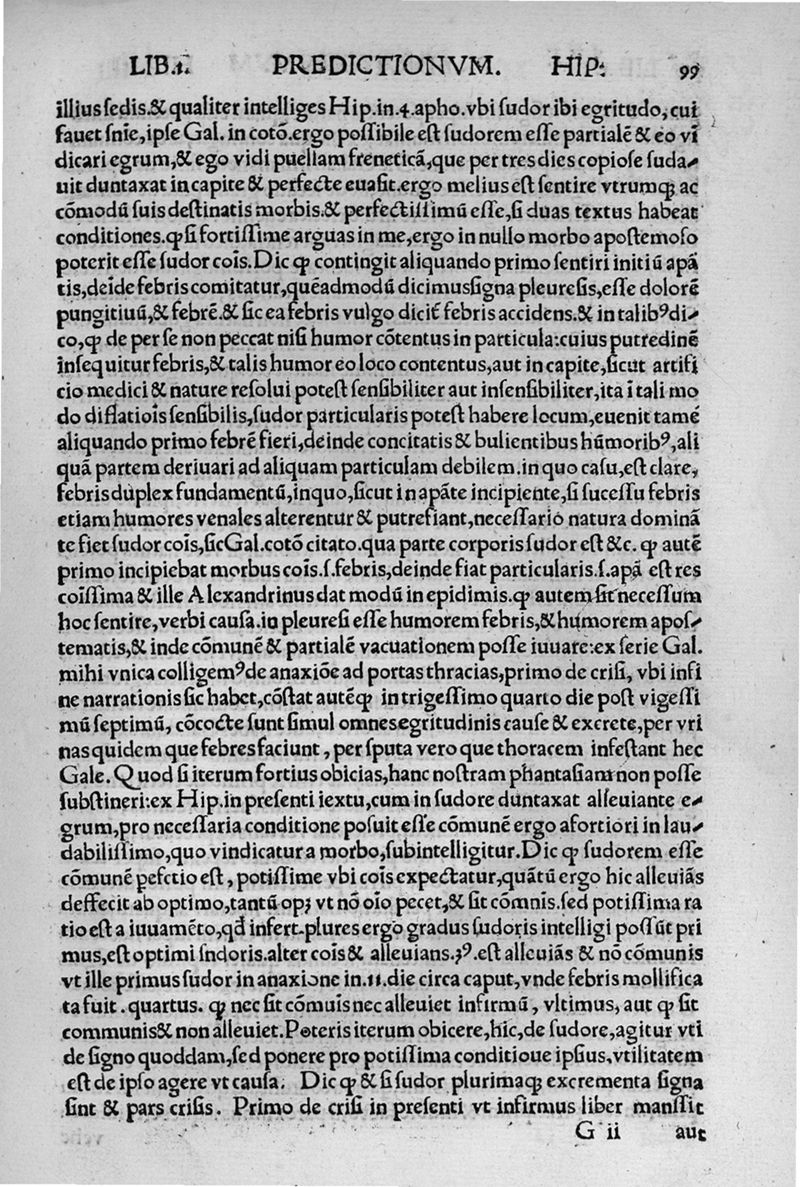 LIB.1. PREDICTIONVM. HIP: 99
illius sedis.& qualiter intelliges Hip.in.4.apho.vbi sudor ibi egritudo,cui
fauet snĩe,ipse Gal. in cotõ.ergo possibile est sudorem esse partialẽ & eo vĩ
dicari egrum,& ego vidi puellam freneticã,que per tres dies copiose suda-
uit duntaxat in capite & perfecte euasit.ergo melius est sentire vtrumqꝫ ac
cõmodũ suis destinatis morbis.& perfectissimũ esse,si duas textus habeat
conditiones.ꝙ si fortissime arguas in me,ergo in nullo morbo apostemoso
poterit esse sudor coĩs.Dic ꝙ contingit aliquando primo sentiri initiũ apã
tis,deĩde febris comitatur,quẽadmodũ dicimus signa pleuresis,esse dolorẽ
pungitiuũ,& febrẽ.& sic ea febris vulgo dicit̃ febris accidens.& in talibꝰ di-
co,ꝙ de per se non peccat nisi humor cõtentus in particula:cuius putredinẽ
insequitur febris,& talis humor eo loco contentus,aut in capite,sicut artifi
cio medici & nature resolui potest sensibiliter aut insensibiliter,ita ĩ tali mo
do diflatiois sensibilis,sudor particularis potest habere locum,euenit tamẽ
aliquando primo febrẽ fieri,deinde concitatis & bulientibus hũmoribꝰ,ali
quã partem deriuari ad aliquam particulam debilem.in quo casu,est clare,
febris duplex fundamentũ,in quo,sicut in apãte incipiente,si sucessu febris
etiam humores venales alterentur & putrefiant,necessario natura dominã
te fiet sudor coĩs,sic Gal.cotõ citato.qua parte corporis sudor est &c. ꝙ autẽ
primo incipiebat morbus coĩs.s.febris,deinde fiat particularis.s.apã est res
coĩssima & ille Alexandrinus dat modũ in epidimis.ꝙ autem sit necessum
hoc sentire,verbi causa.in pleuresi esse humorem febris,& humorem apos-
tematis,& inde cõmunẽ & partialẽ vacuationem posse iuuare:ex serie Gal.
mihi vnica colligemꝰ de anaxiõe ad portas thracias,primo de crisi, vbi infi
ne narrationis sic habet,cõstat autẽꝙ in trigessimo quarto die post vigessi
mũ septimũ, cõcocte sunt simul omnes egritudinis cause & excrete,per vri
nas quidem que febres faciunt, per sputa vero que thoracem infestant hec
Gale. Quod si iterum fortius obicias,hanc nostram phantasiam non posse
substineri:ex Hip.in presenti iextu,cum in sudore duntaxat alleuiante e-
grum,pro necessaria conditione posuit esse cõmunẽ ergo afortiori in lau-
dabilissimo,quo vindicatur a morbo,subintelligitur.Dic ꝙ sudorem esse
cõmunẽ pefctio est, potissime vbi coĩs expectatur,quãtũ ergo hic alleuiãs
deffecit ab optimo,tantũ opꝫ vt nõ oĩo pecet,& sit cõmnis.sed potissima ra
tio est a iuuamẽto,qđ infert.plures ergo gradus sudoris intelligi possũt pri
mus,est optimi sndoris.alter coĩs & alleuians.3ꝰ.est alleuiãs & nõ cõmunis
vt ille primus sudor in anaxione in.11.die circa caput,vnde febris mollifica
ta fuit. quartus. ꝙ nec sit cõmuĩs nec alleuiet infirmũ, vltimus, aut ꝙ sit
communis& non alleuiet.Poteris iterum obicere,hic,de sudore,agitur vti
de signo quoddam,sed ponere pro potissima conditioue ipsius,vtilitatem
est de ipso agere vt causa. Dic ꝙ & si sudor plurimaqꝫ excrementa signa
sint & pars crisis. Primo de crisi in presenti vt infirmus liber manssit
G ii aut